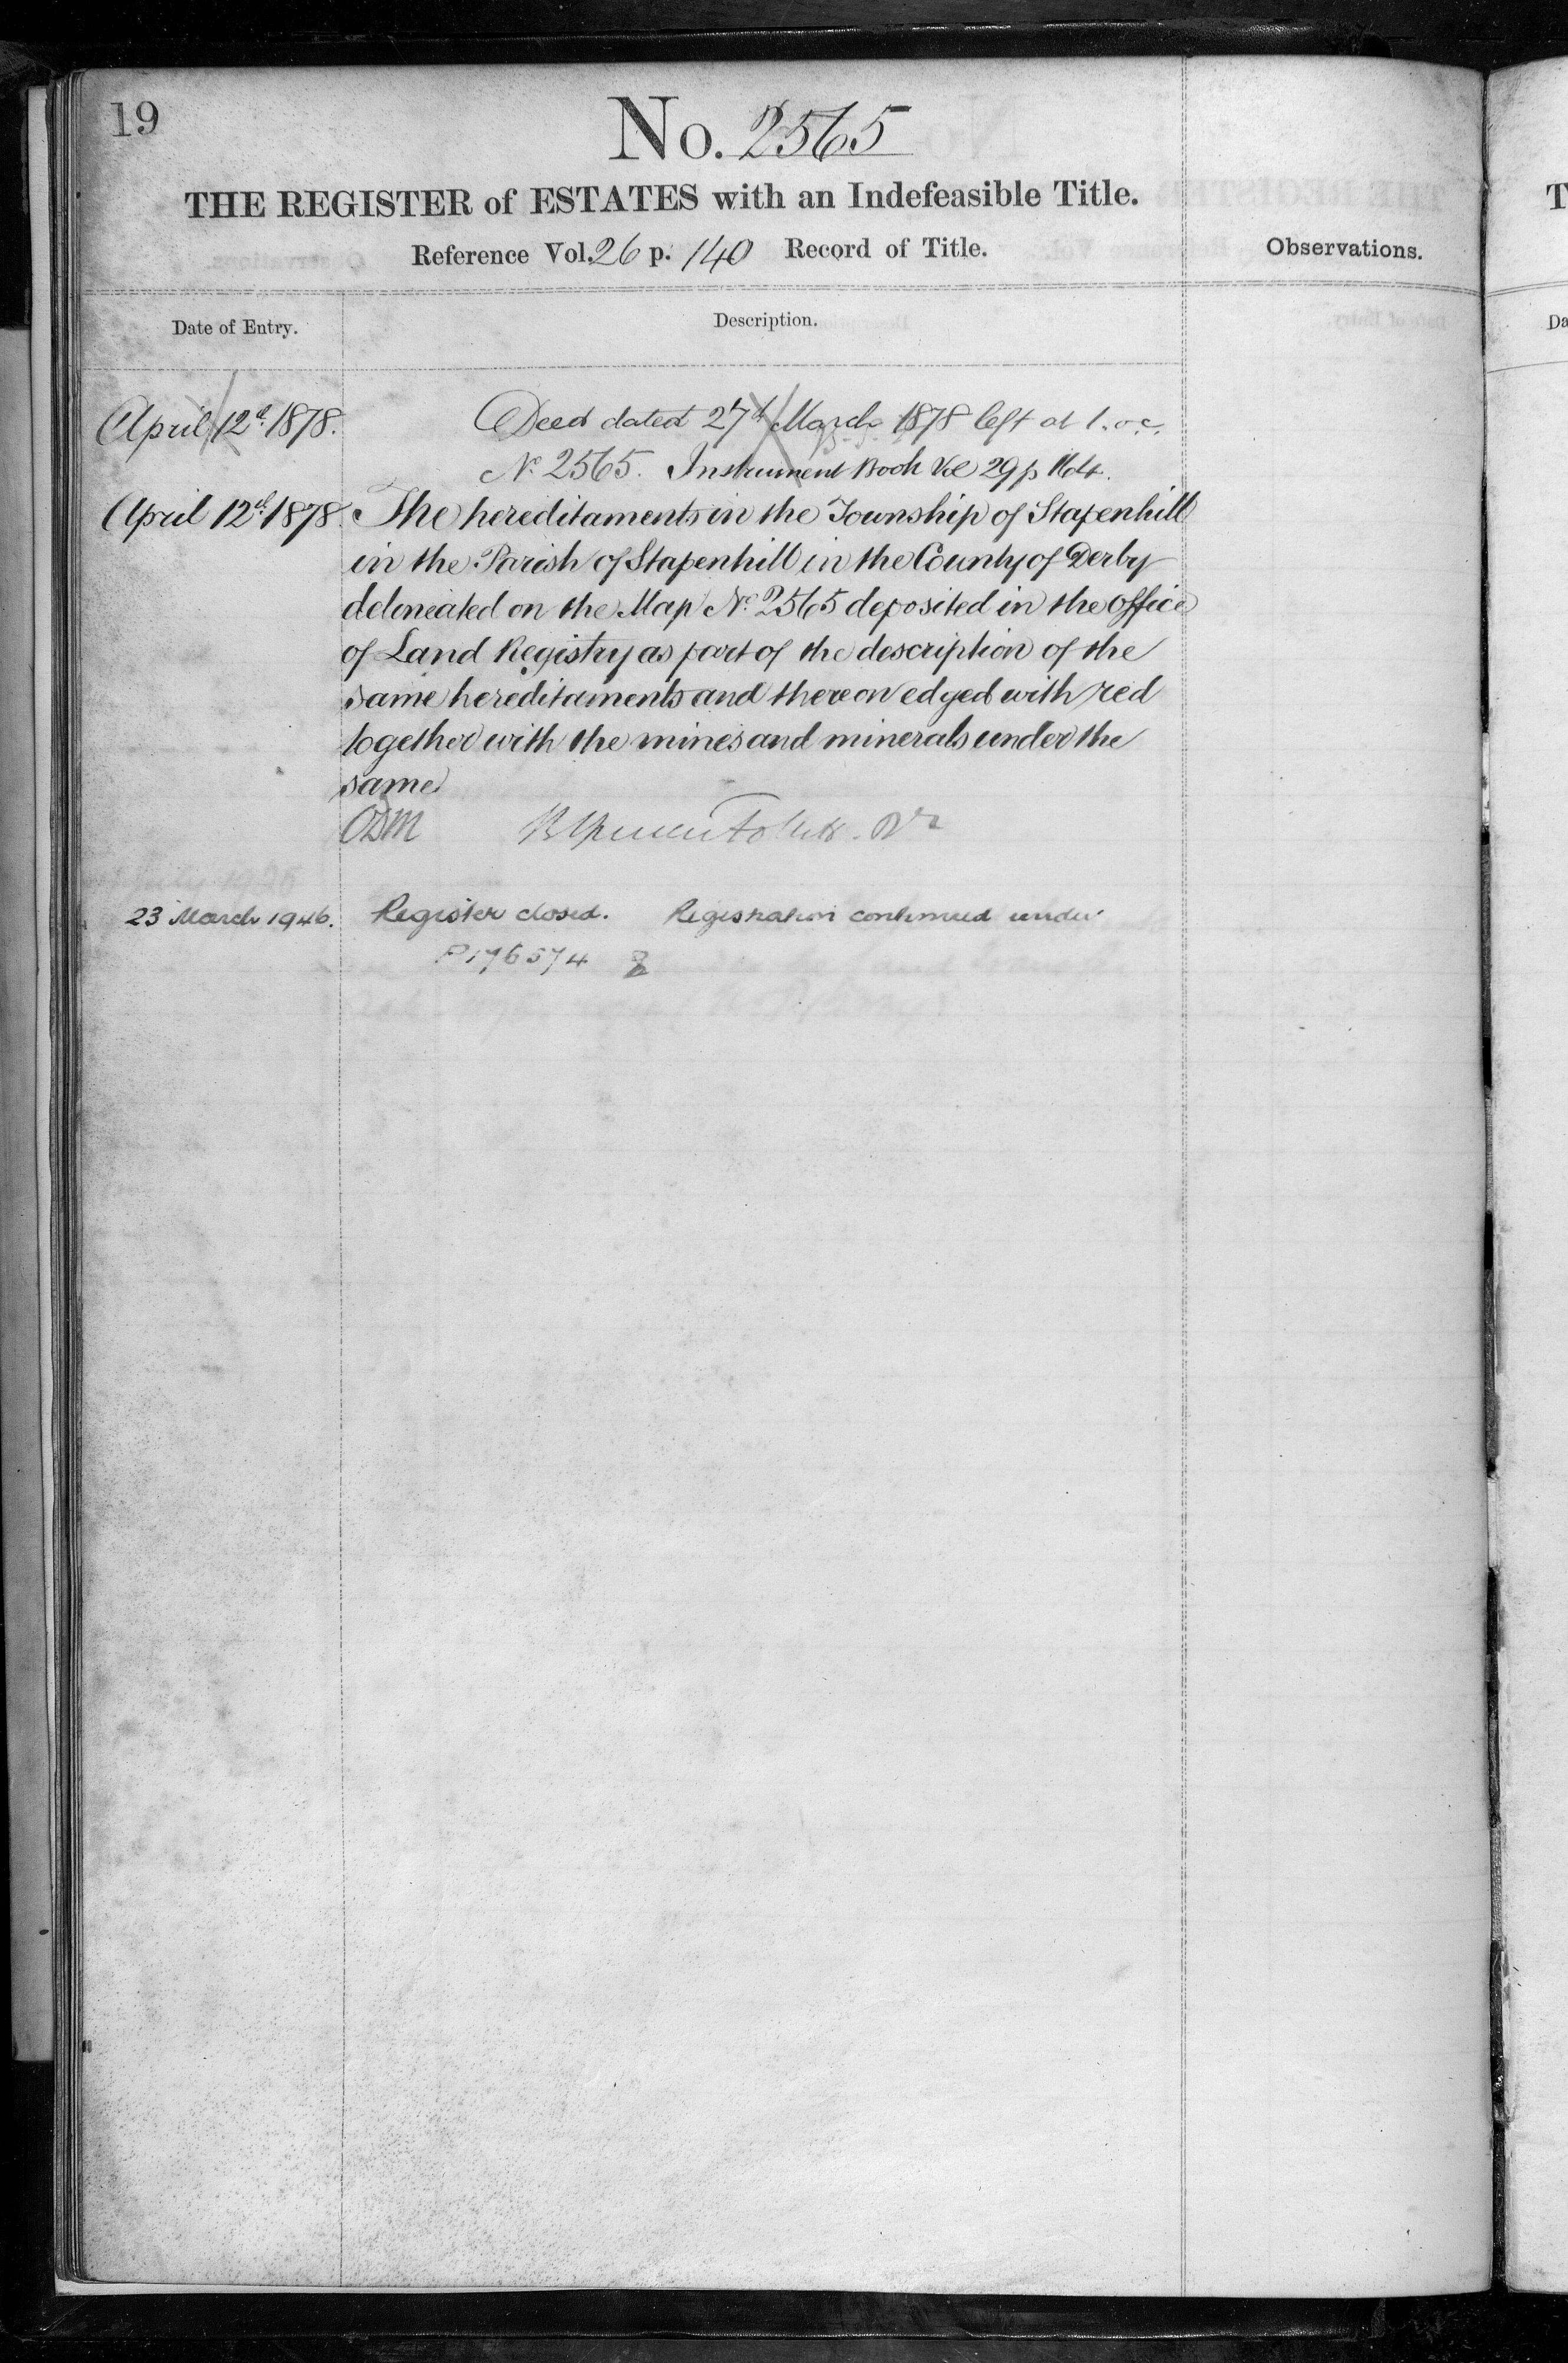 19
No. 2565
THE REGISTER of ESTATES with an Indefeasible Title.
Reference Vol. 26 p. 140 Record of Title.
Observations.
Date of Entry.
Description.
April 12th 1878.
Deed dated 27th March 1878 left at 1. o.c.
No. 2565. Instrument Book Vol 29 p 164.
April 12th 1878. The hereditaments in the Township of Stapenhill
in the Parish of Stapenhill in the County of Derby
delineated on the Map No. 2565 deposited in the office
of Land Registry as part of the description of the
same hereditaments and thereon edged with red
together with the mines and minerals under the
same
23 March 1946. Register closed. Registration continued under
P176574